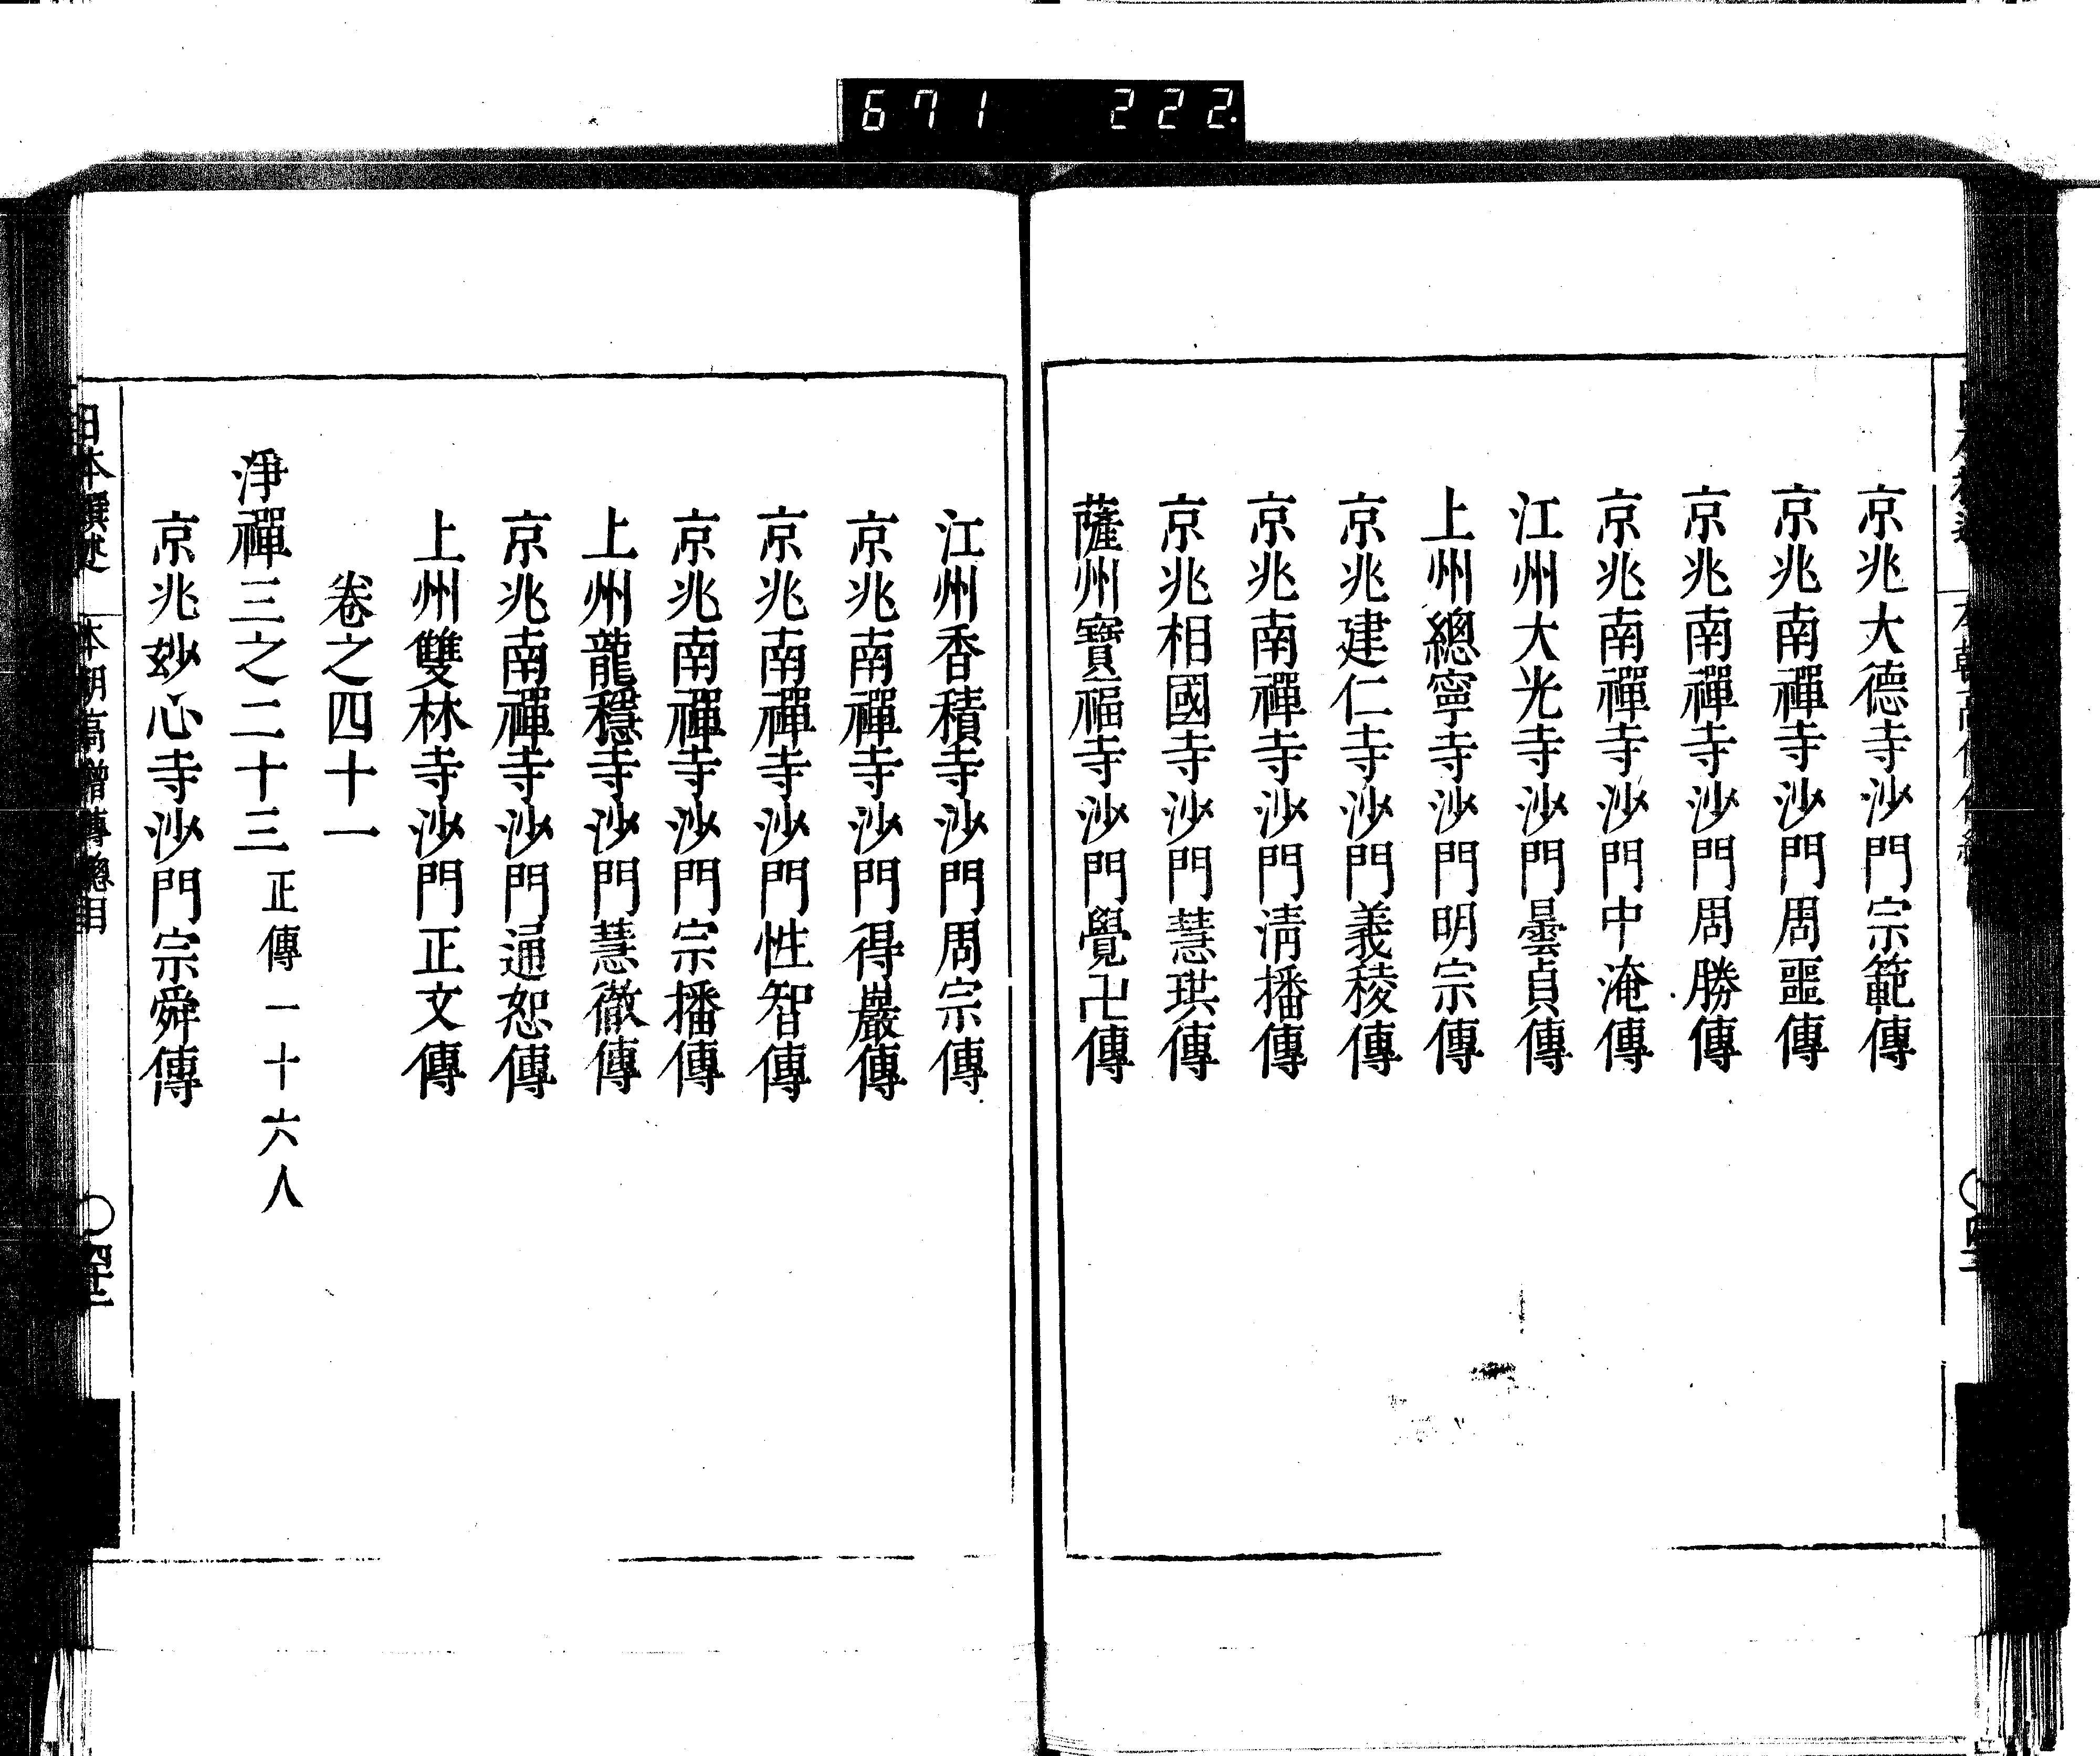 671 222.
京兆大德寺沙門宗範傳
京兆南禪寺沙門周噩傳
京兆南禪寺沙門周勝傳
京兆南禪寺沙門中淹傳
江州大光寺沙門曇貞傳
上州總寧寺沙門明宗傳
京兆建仁寺沙門義稜傳
京兆南禪寺沙門淸播傳
京兆相國寺沙門慧珙傳
薩州寶福寺沙門覺卍傳
江州香積寺沙門周宗傳
京兆南禪寺沙門得巖傳
京兆南禪寺沙門性智傳
京兆南禪寺沙門宗播傳
上州龍穩寺沙門慧徹傳
京兆南禪寺沙門通恕傳
上州雙林寺沙門正文傳
卷之四十一
淨禪三之二十三 正傳一十六人
京兆玅心寺沙門宗舜傳
日本撰述 本朝高僧傳總目